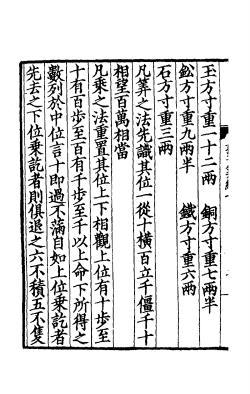 玉方寸重一十二兩　銅方寸重七兩半
鈆方寸重九兩半　鐵方寸重六兩
石方寸重三兩
凡筭之法先識其位一從十橫百立千僵千十
相望百萬相當
凡乗之法重置其位上下相觀上位有十步至
十有百步至百有千步至千以上命下所得之
數列於中位言十即過不滿自如上位乗訖者
先去之下位乗訖者則俱退之六不積五不隻